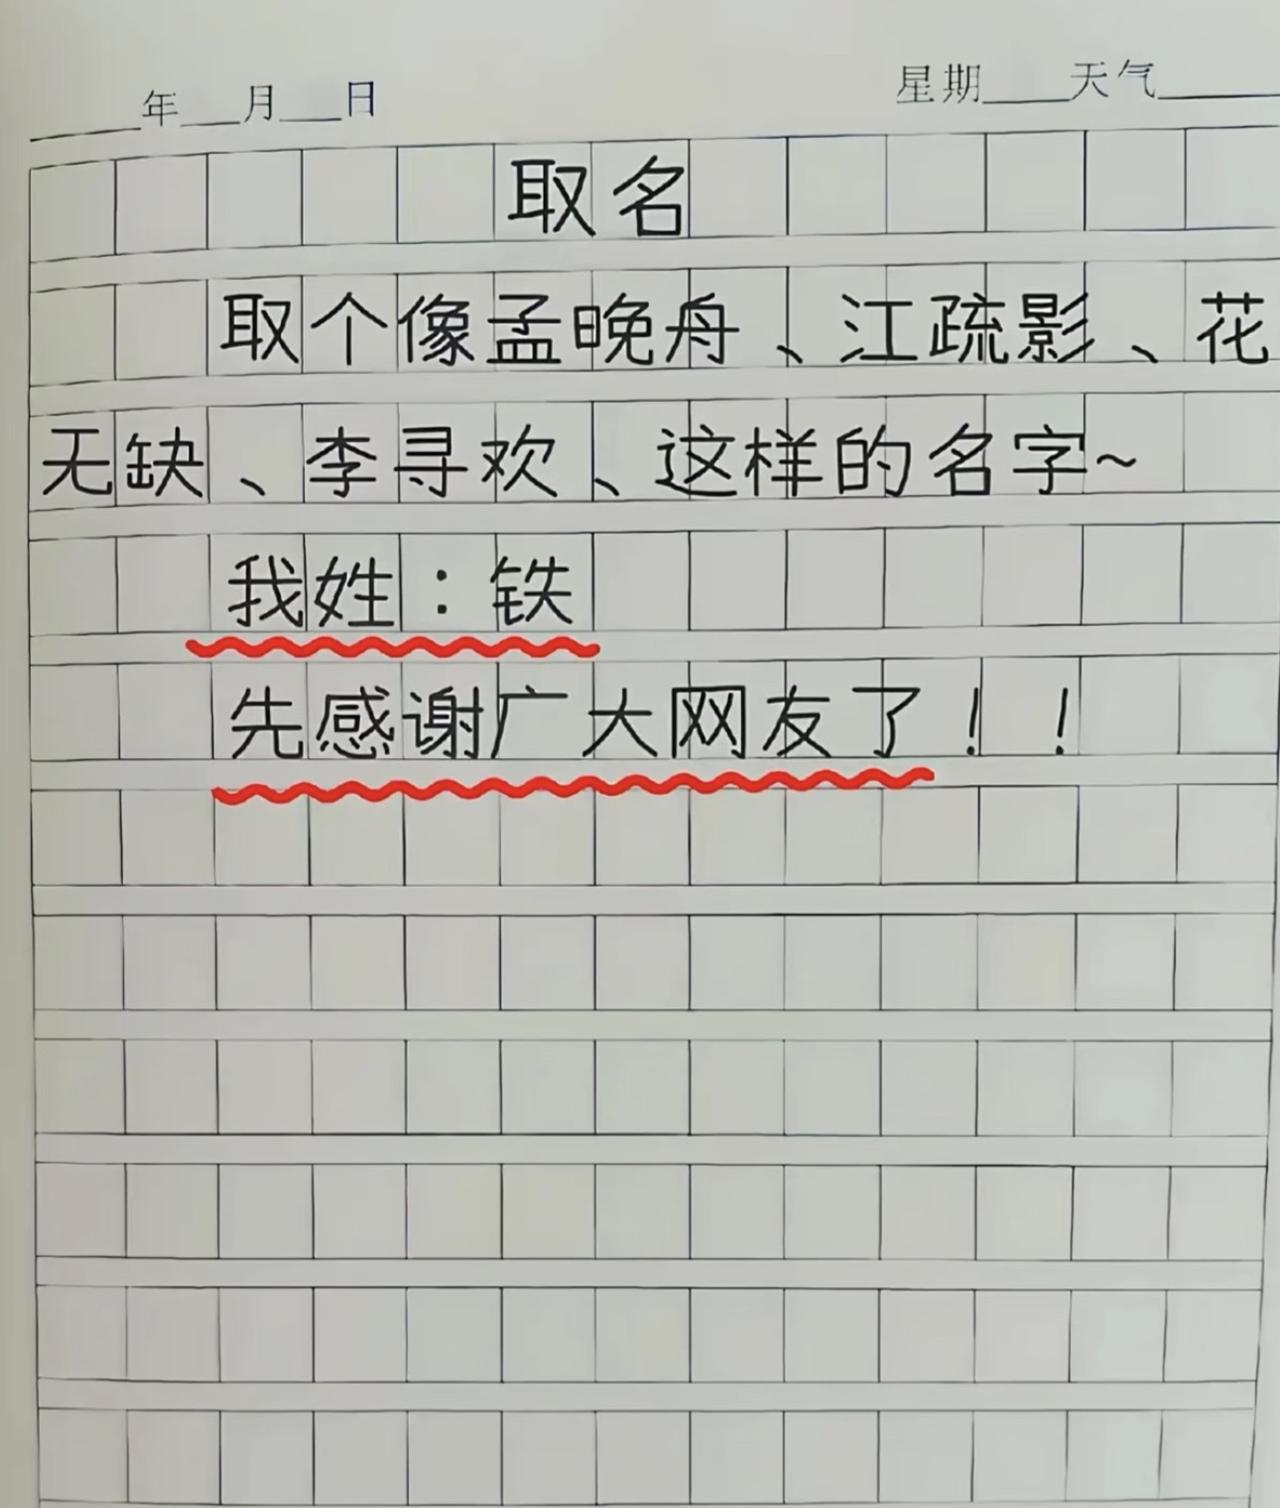 年 月 日 星期 天气
取名
取个像孟晚舟、江疏影、花
无缺、李寻欢、这样的名字~
我姓：铁
先感谢广大网友了！！